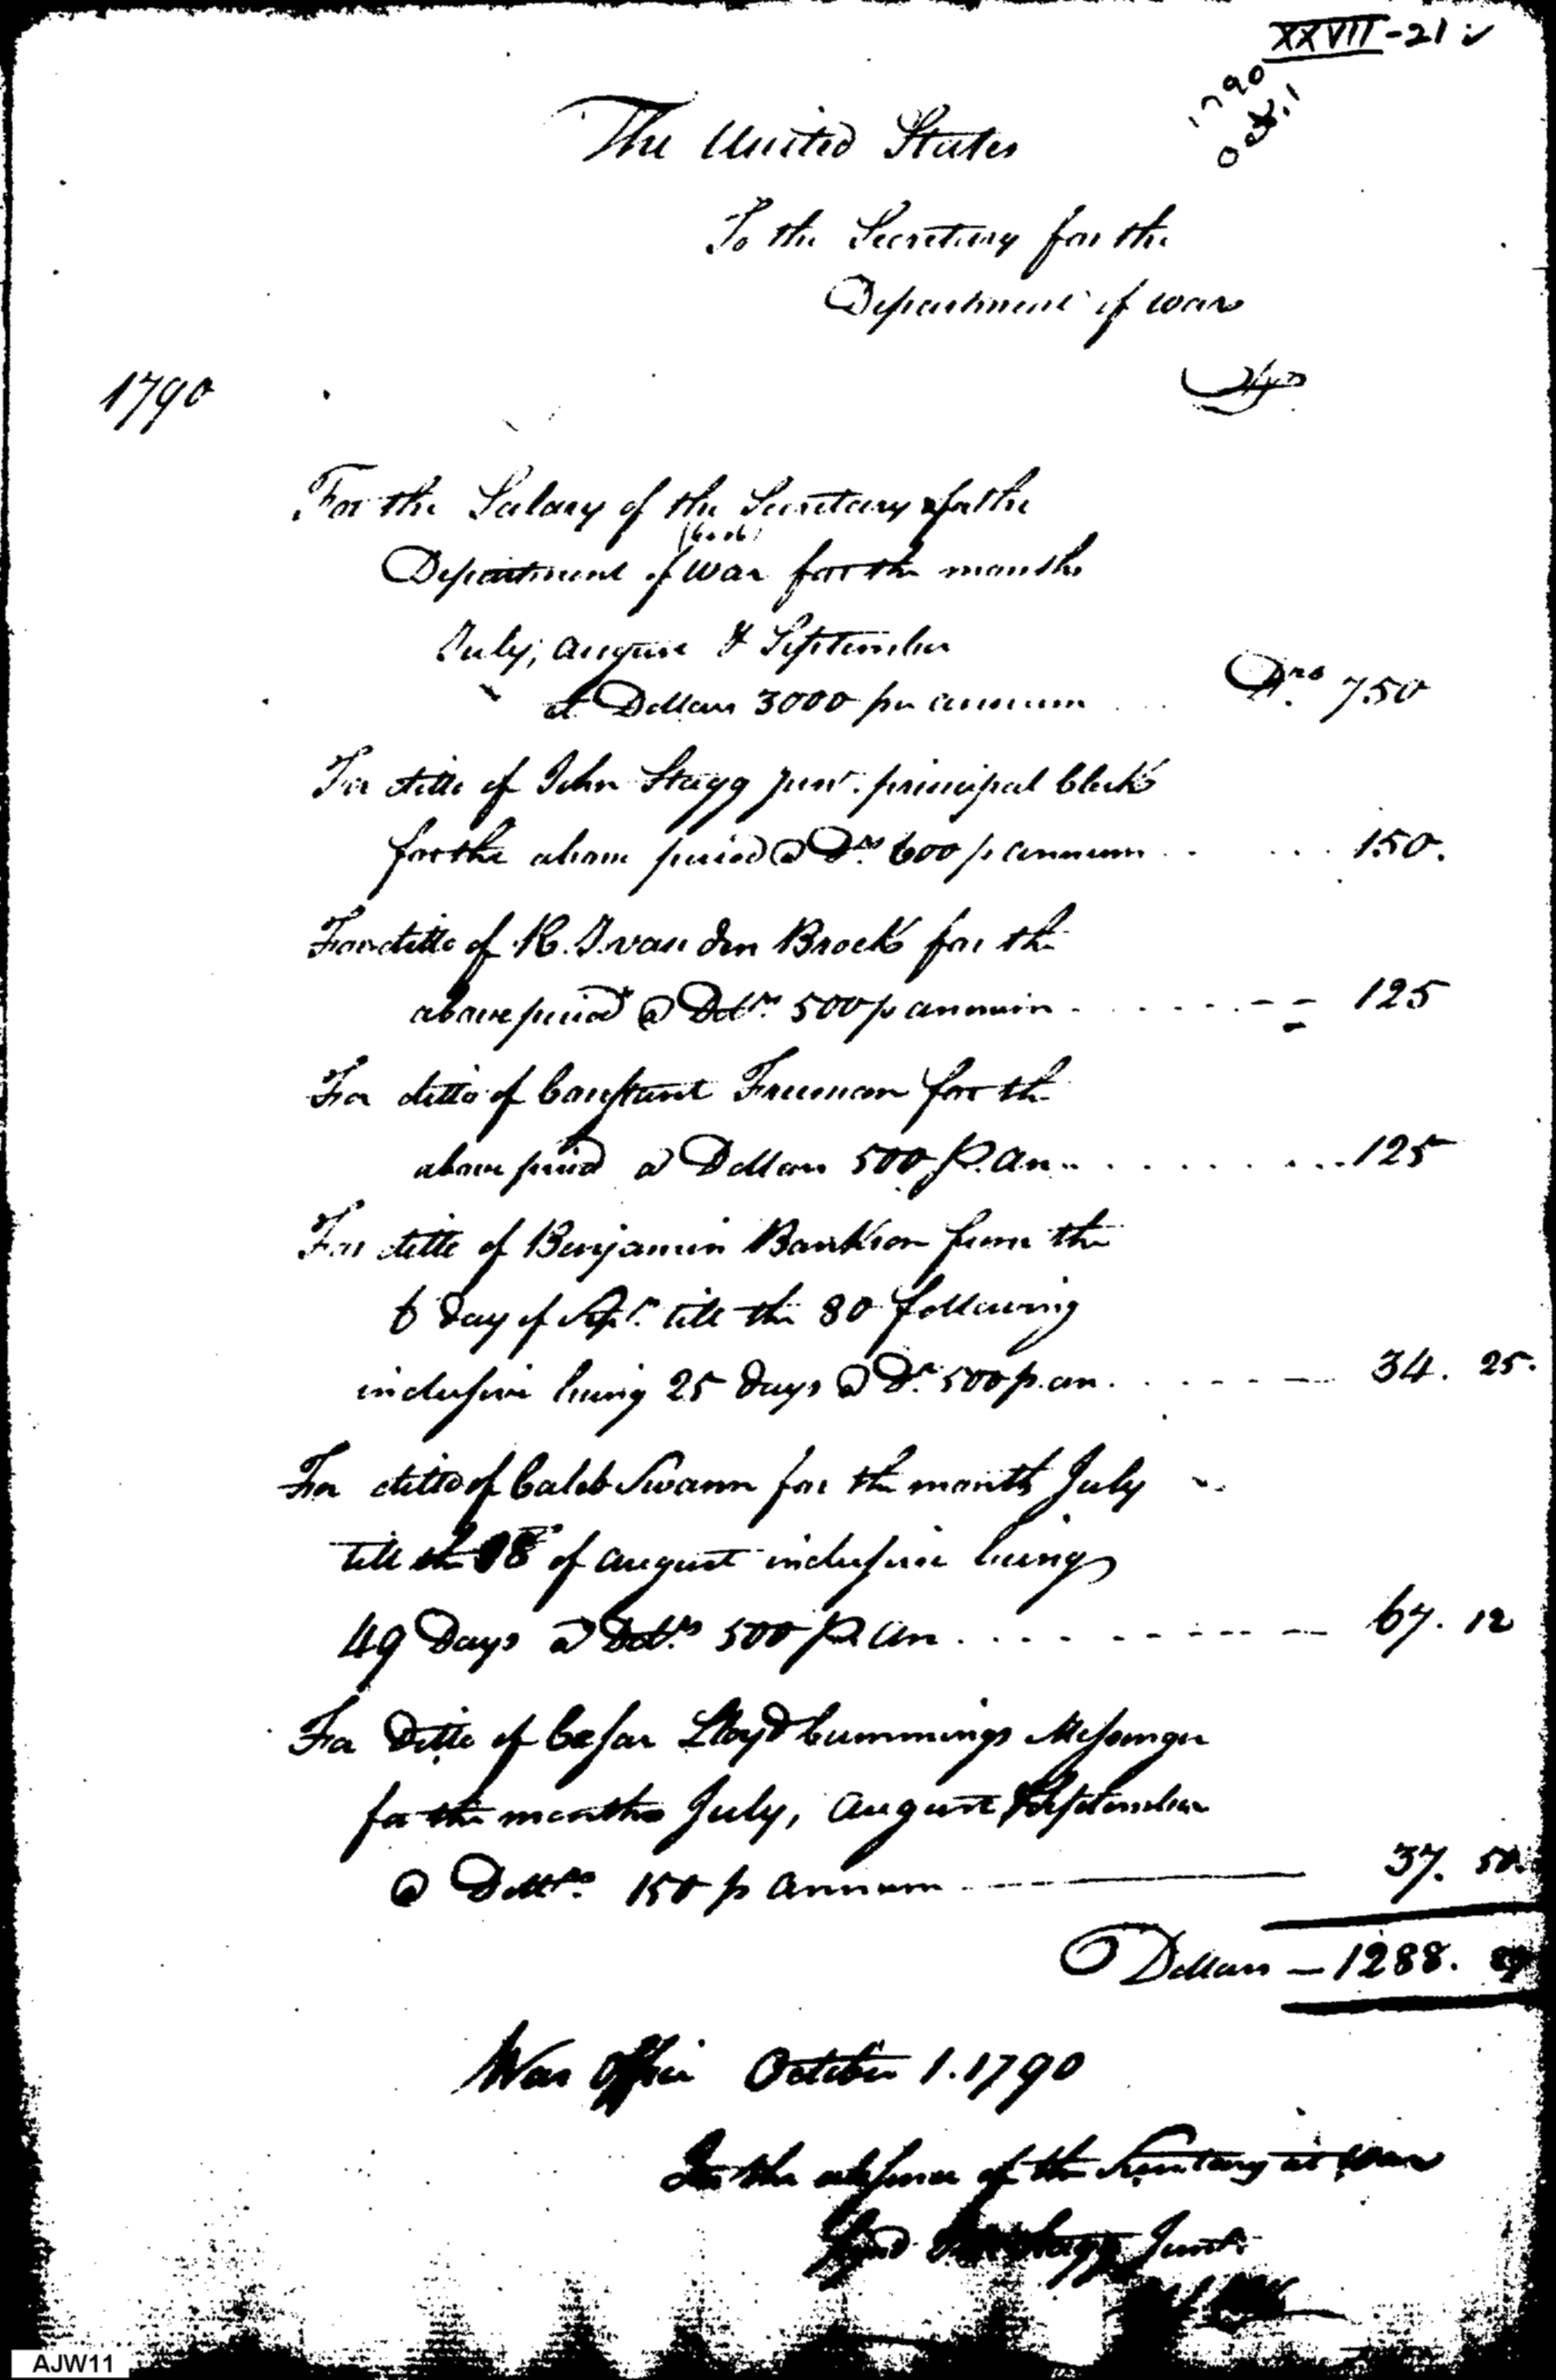 XXVII-21
1790
Oct. 1
The United States
To the Secretary for the
Department of war
Dr
1790
For the Salary of the Secretary for the
(Knox)
Department of war for the months
July, august & September
at Dollars 3000 per annum ... Drs. 750
For ditto of John Stagg junr. principal Clerk
for the above period @ Drs. 600 p annum .. ... 150.
For ditto of R. J. van den Broek for the
above period @ Dolrs. 500 p annum . . . . . - - - 125
For ditto of Constant Freeman for the
above period @ Dollars 500 P. an.. . . . . . ... 125
For ditto of Benjamin Bankson from the
6 day of Sepr. till the 30 following
inclusive being 25 days @ Dr. 500 p. an. . . . - - - 34. 25.
For ditto of Caleb Swann for the month July
till the 18 of august inclusive being
49 Days @ Dolrs. 500 P an . . . . - - - - 67. 12
For Ditto of Cesar Lloyd Cummings Messenger
for the months July, august & September
@ Dollrs. 150 p annum ---- 37. 50.
Dollars — 1288. 87
War office October 1. 1790
In the absence of the Secretary at war
Signd Stagg Junr.
AJW11